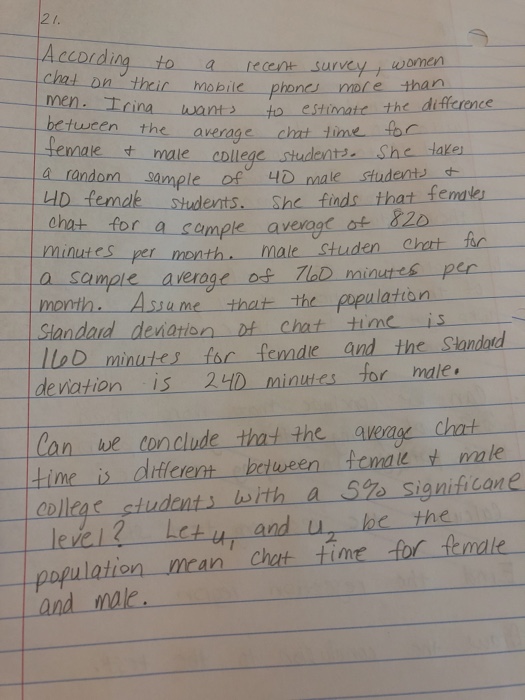 21.
According to a recent survey, women
chat on their mobile phones more than
men. Irina wants to estimate the difference
between the average chat time for
female & male college students. She takes
a random sample of 40 male students &
40 female students. She finds that females
chat for a sample average of 820
minutes per month. Male studen chat for
a sample average of 760 minutes per
month. Assume that the population
standard deviation of chat time is
160 minutes for female and the standard
deviation is 240 minutes for male.
Can we conclude that the average chat
time is different between female & male
college students with a 5% significane
level? Let u₁ and u₂ be the
population mean chat time for female
and male.